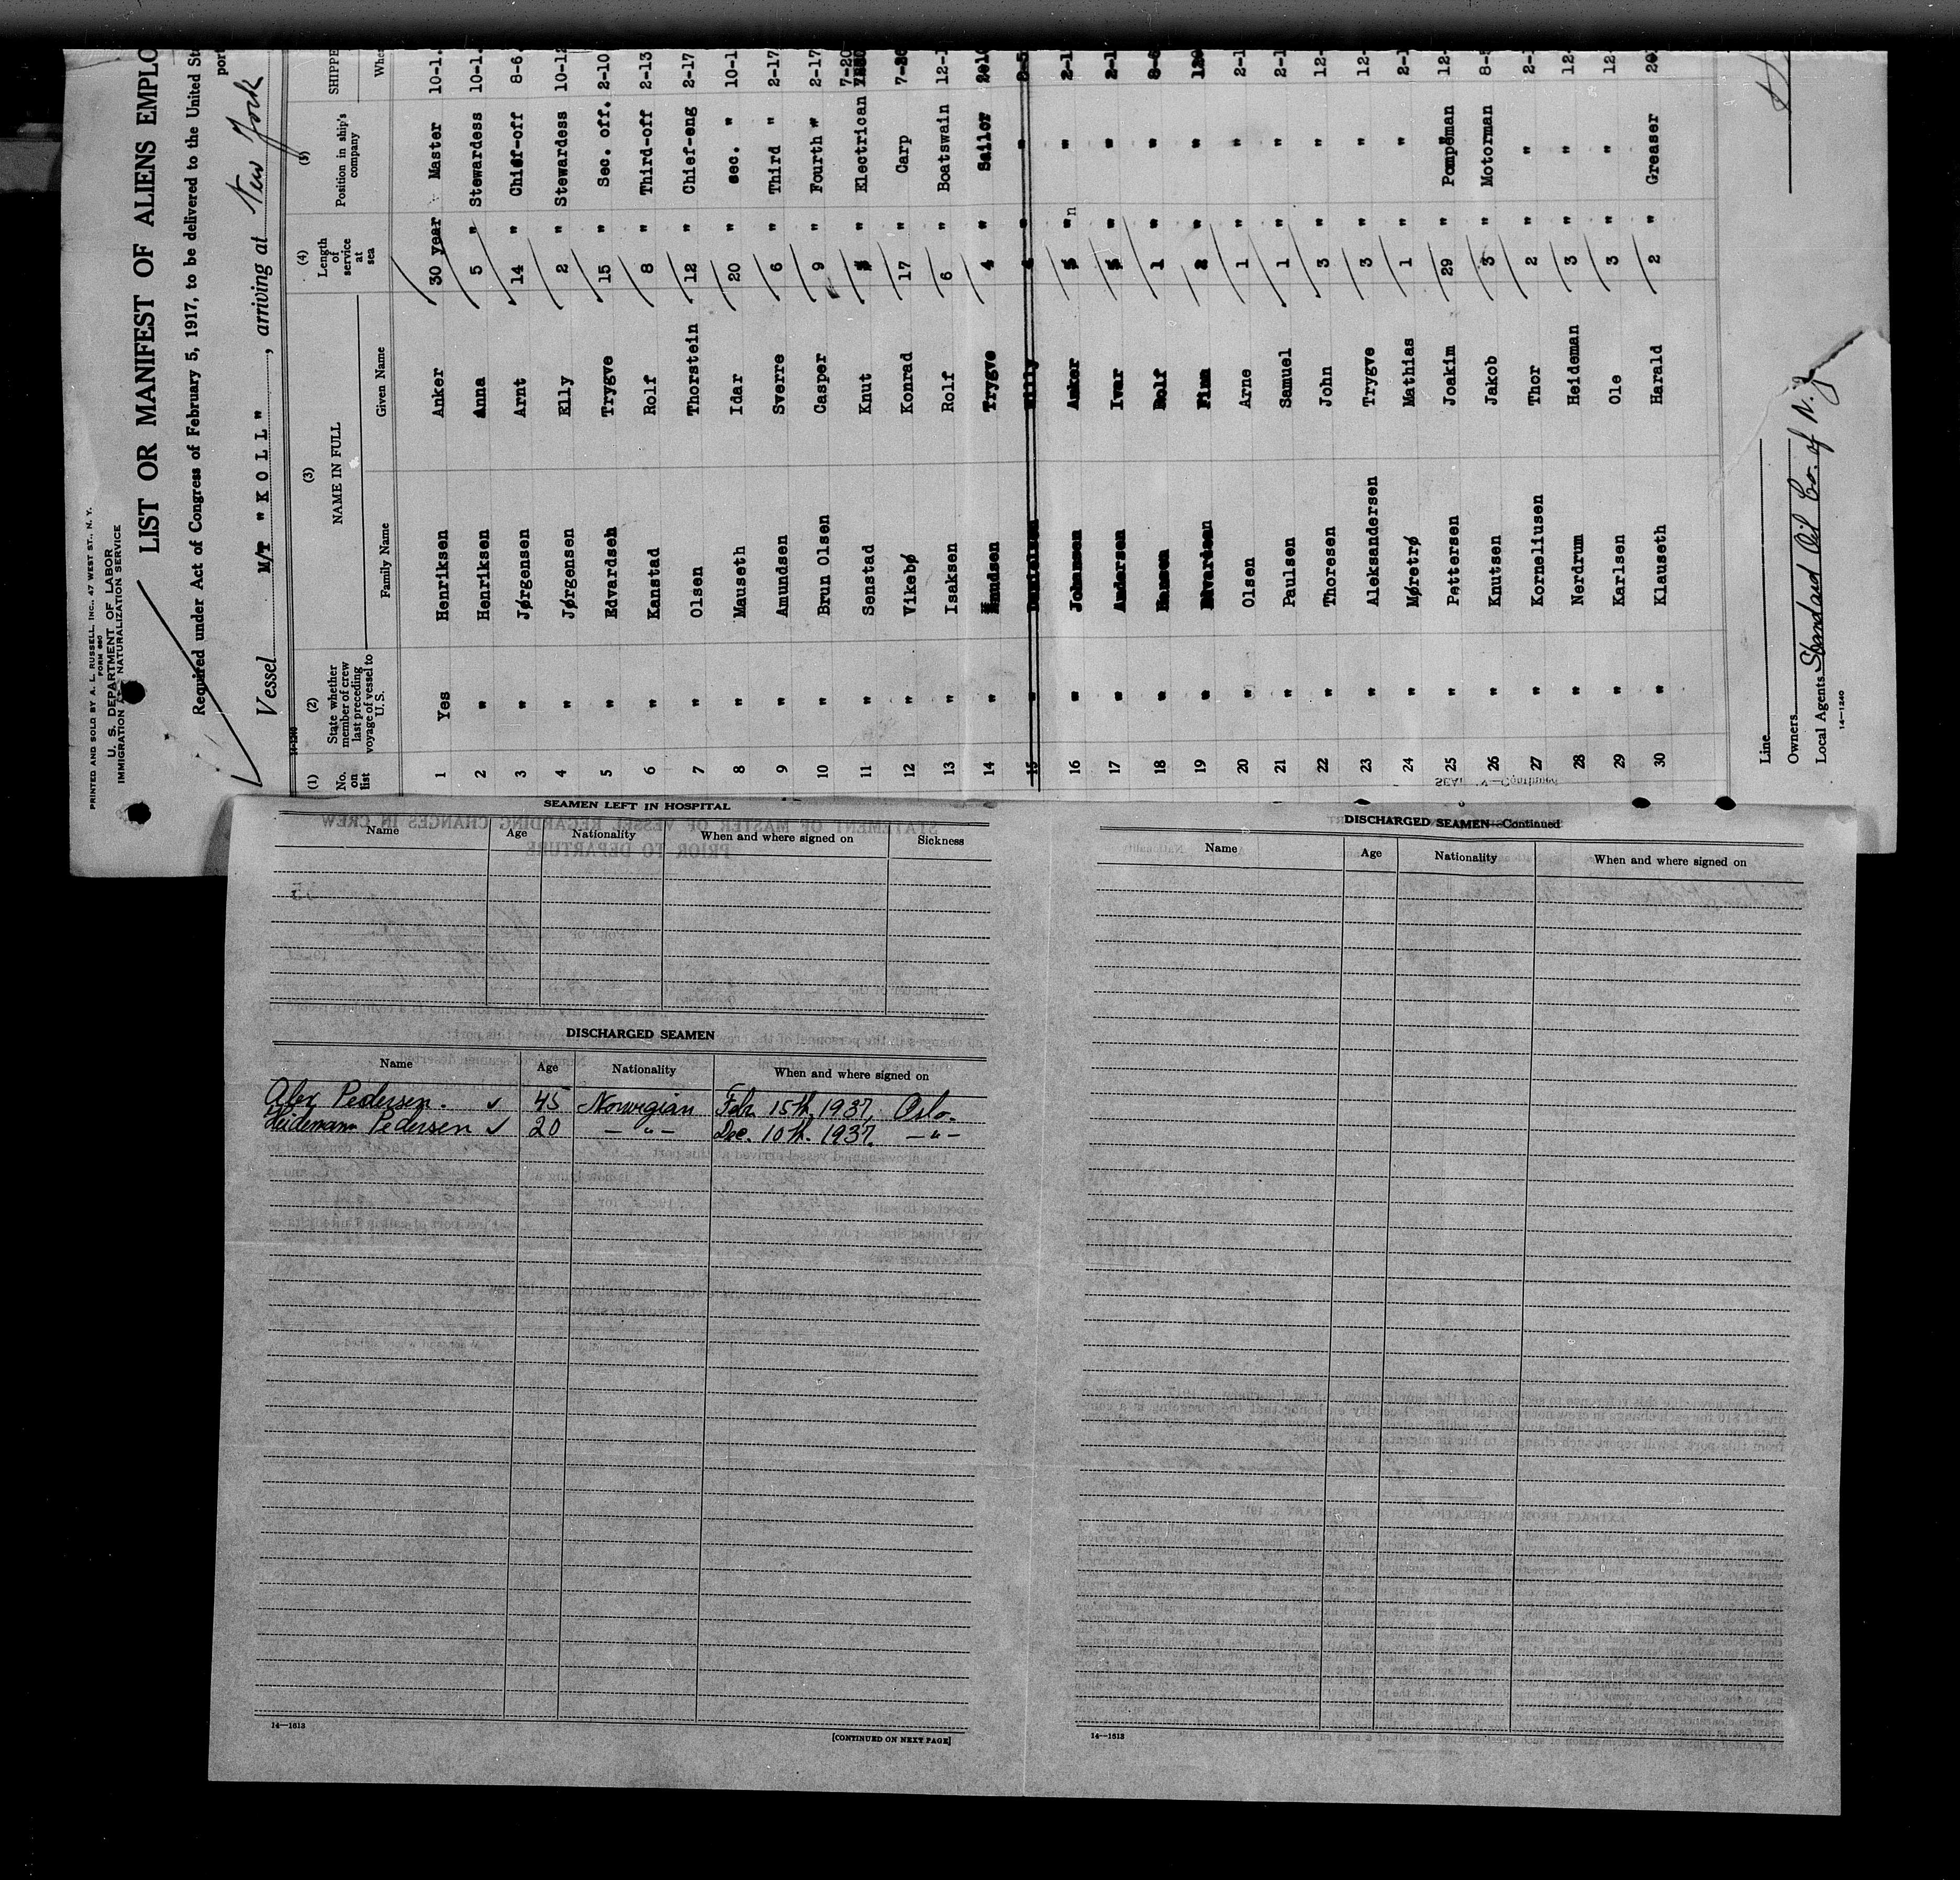 PRINTED AND SOLD BY A. L. RUSSELL, INC., 47 WEST ST., N. Y.
FORM 680
U. S. DEPARTMENT OF LABOR
IMMIGRATION NATURALIZATION SERVICE
LIST OR MANIFEST OF ALIENS EMPLO
Required under Act of Congress of February 5, 1917, to be delivered to the United St
port
Vessel M/T "KOLL", arriving at New York
14-1240
(1) No. on list (2) State whether member of crew last preceding voyage of vessel to U.S. (3) NAME IN FULL Family Name Given Name (4) Length of service at sea (5) Position in ship's company SHIPPE Whe
1 Yes Henriksen Anker 30 year Master 10-1
2 " Henriksen Anna 5 " Stewardess 10-1
3 " Jørgensen Arnt 14 " Chief-off 8-6
4 " Jørgensen Elly 2 " Stewardess 10-12
5 " Edvardsen Trygve 15 " Sec. off. 2-10
6 " Kanstad Rolf 8 " Third-off 2-13
7 " Olsen Thorstein 12 " Chief-eng 2-17
8 " Mauseth Idar 20 " sec. " 10-1
9 " Amundsen Sverre 6 " Third " 2-17
10 " Brun Olsen Casper 9 " Fourth " 2-17
11 " Senstad Knut " Electrican 7-20
12 " Vikebø Konrad 17 " Carp 7-20
13 " Isaksen Rolf 6 " Boatswain 12-1
14 " Trygve 4 " Sailor
15 " Willy "
16 " Johansen Anker " " 2-1
17 " Andersen Ivar " " 2-1
18 " Hansen Rolf 1 " " 8-6
19 " Edvardsen Finn 2 " "
20 " Olsen Arne 1 " " 2-1
21 " Paulsen Samuel 1 " " 2-1
22 " Thoresen John 3 " " 12-
23 " Aleksandersen Trygve 3 " " 12-
24 " Møretrø Mathias 1 " " 2-1
25 " Pettersen Joakim 29 " Pompeman 12-
26 " Knutsen Jakob 3 " Motorman 8-5
27 " Korneliusen Thor 2 " " 2-1
28 " Nerdrum Heideman 3 " " 12-
29 " Karlsen Ole 3 " " 12-
30 " Klauseth Harald 2 " Greaser 20
Line
Owners
Local Agents Standard Oil Co. of N.J
14-1240
SEAMEN LEFT IN HOSPITAL
Name Age Nationality When and where signed on Sickness
DISCHARGED SEAMEN
Name Age Nationality When and where signed on
Alex Pedersen. 45 Norwegian Feb. 15th. 1937, Oslo.
Heidemann Pedersen 20 — " — Dec. 10th. 1937. — " —
14—1613
[CONTINUED ON NEXT PAGE]
DISCHARGED SEAMEN—Continued
Name Age Nationality When and where signed on
14—1613